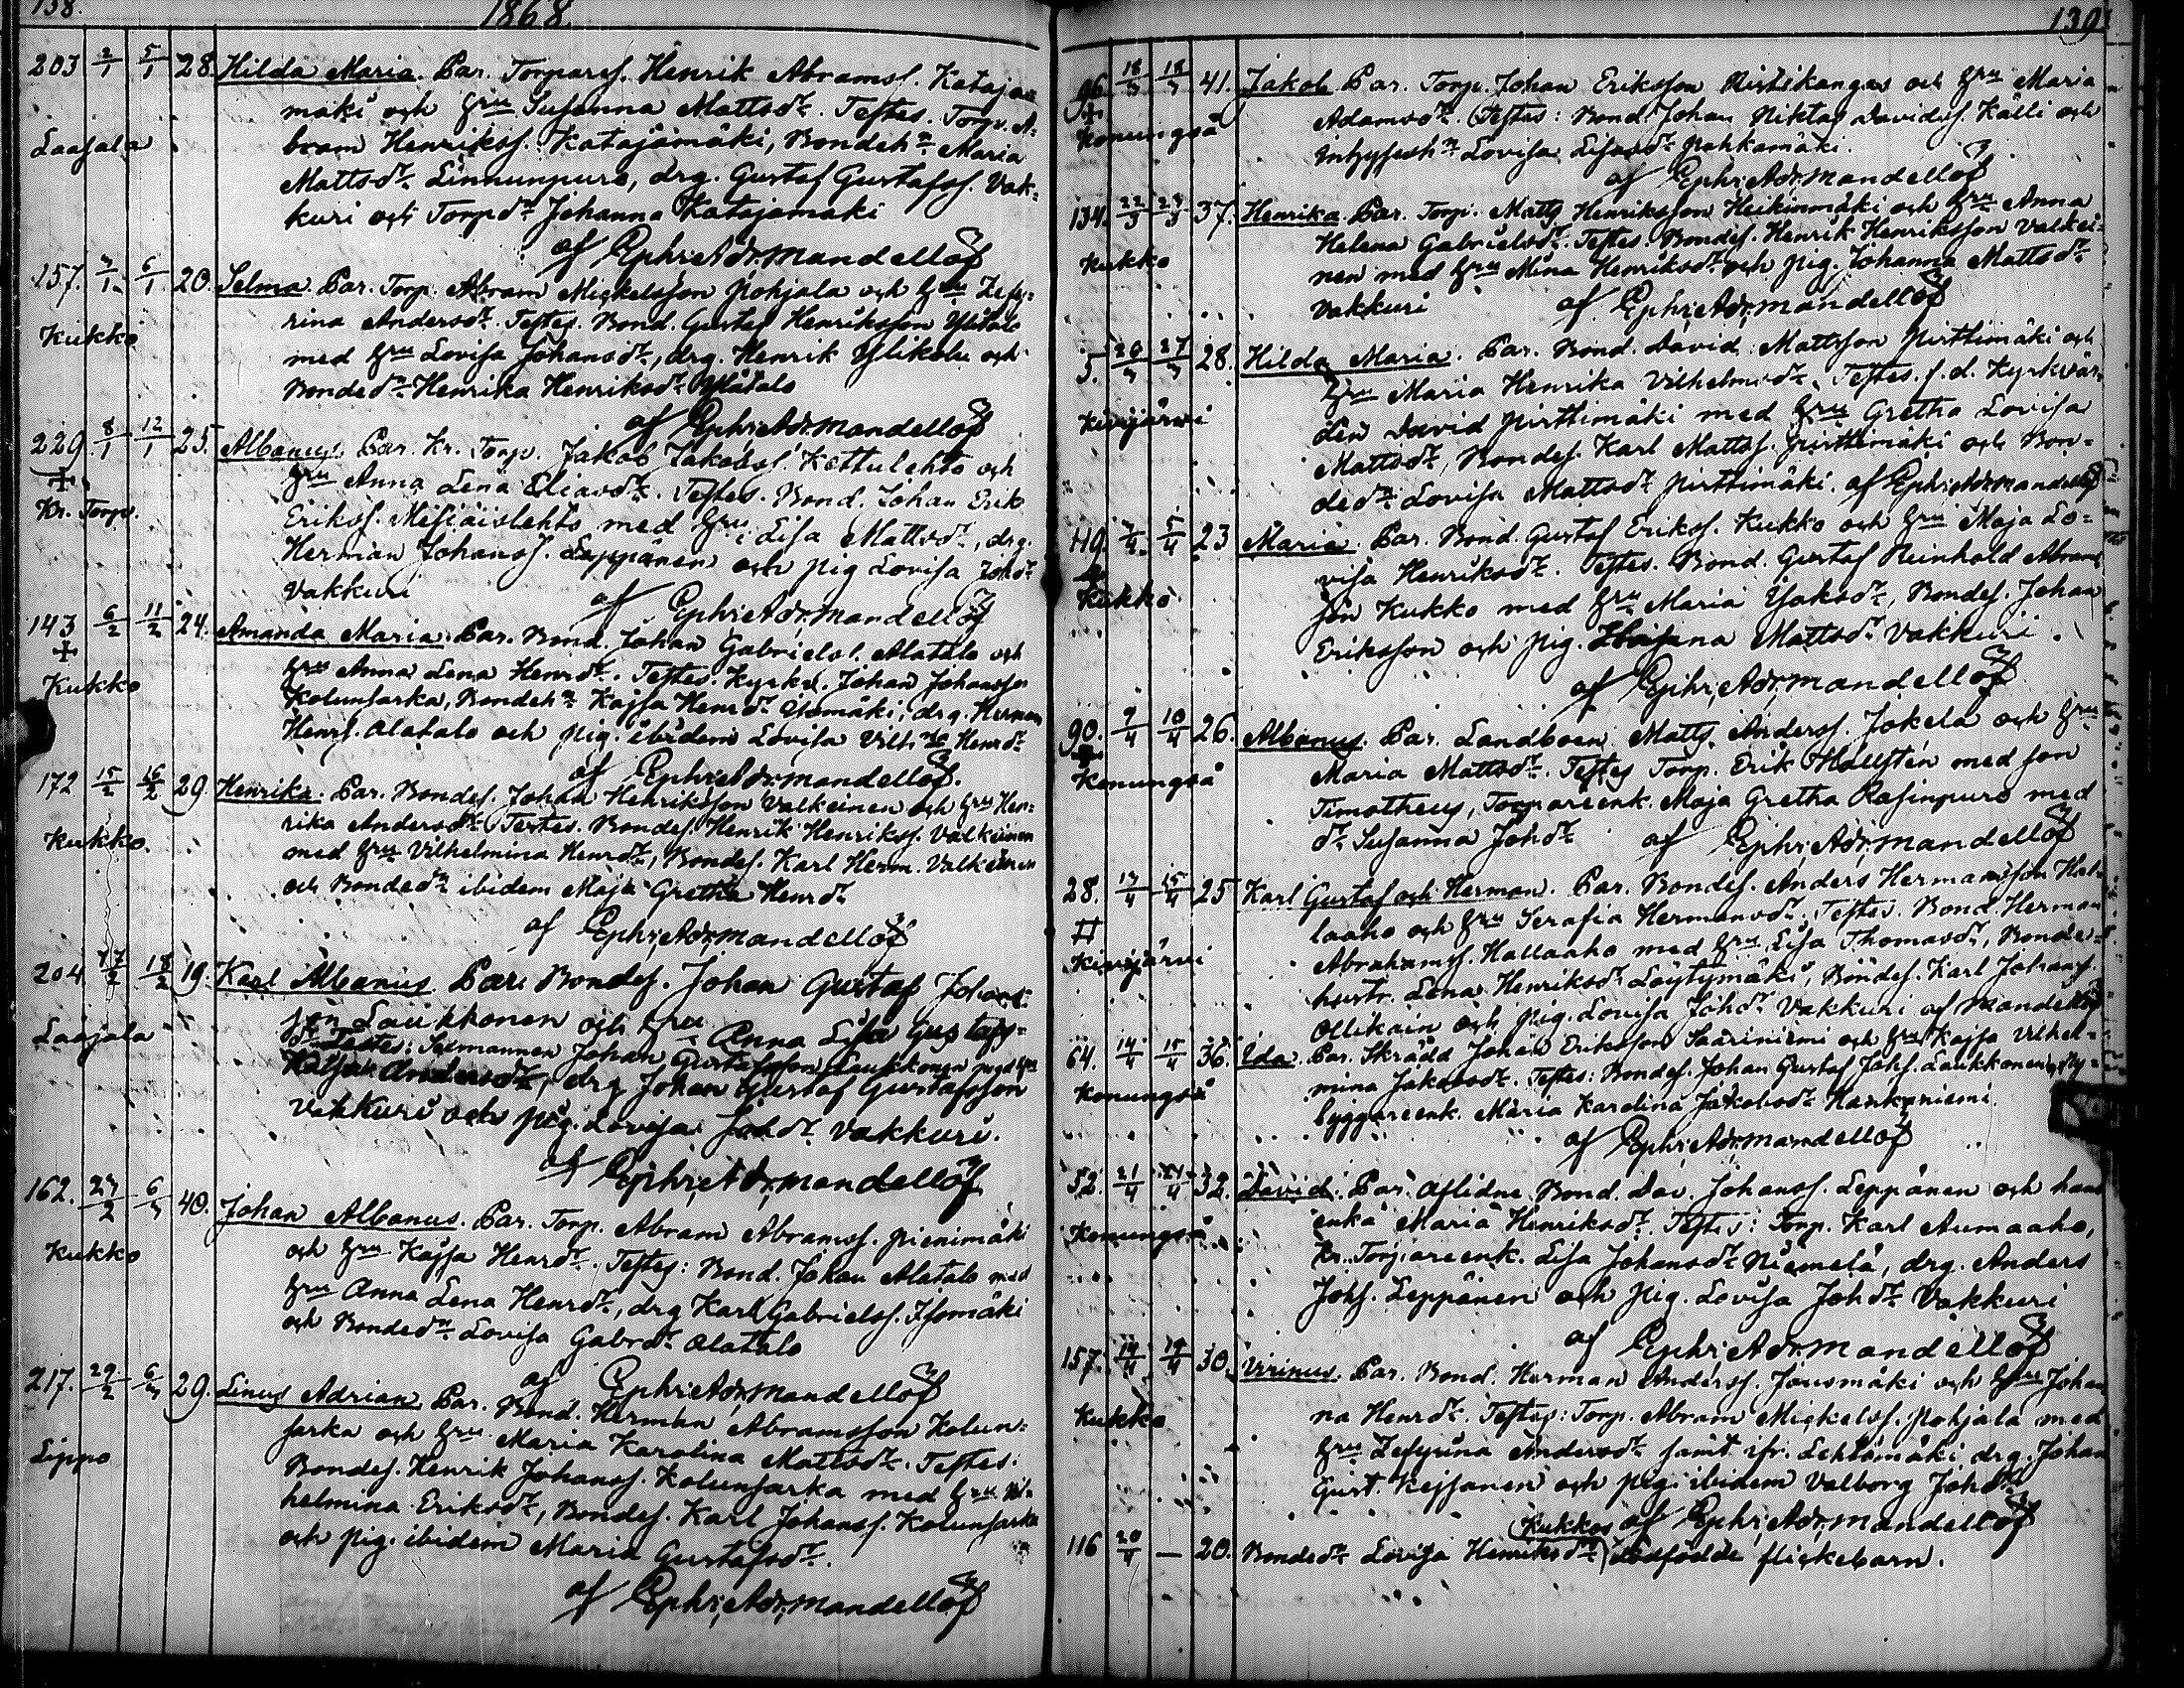 138.
1868.
203 2/1 5/1 28. Hilda Maria. Par. Torpares. Henrik Abramss. Kataja=
mäki och hru Susanna Mattsdr. Testes. Torp. A=
Laajala
bram Henrikss. Katajamäki, Bondeh. Maria
Mattsdr. Linnunpuro, drg. Gustaf Gustafss. Vak=
kuri och Torpdr Johanna Katajamäki
af Ephr. Adr. Mandellöf
157. 3/1 6/1 20. Selma. Par. Torp. Abram Mickelsson Pohjala och hru Zefy=
rina Andersdr. Testes. Bond. Gustaf Henriksson Ylitalo
Kukko
med hru Lovisa Johansdr, drg. Henrik Ylikolu och
Bondedr Henrika Henriksdr Ylitalo
af Ephr. Adr. Mandellöf
229. 8/1 12/1 25. Albanus. Par. Kr. Torp. Jakob Jakobss. Kettulehto och
hru Anna Lena Eliasdr. Testes. Bond. Johan Erik
Kr. Torp.
Erikss. Mesiäislehto med hru Lisa Mattsdr, drg.
Herman Johanss. Leppänen och pig Lovisa Johdr
Vakkuri
af Ephr. Adr. Mandellöf
143 6/2 11/2 24. Amanda Maria. Par. Bond. Johan Gabriels. Alatalo och
hru Anna Lena Henrdr. Testes. Kyrkv. Johan Johansson
Kukko
Kolunsarka, Bondeh. Kajsa Henrdr Isomäki, drg. Herman
Henrs. Alatalo och pig. ibidem Lovisa Vilh. Henrdr
af Ephr. Adr. Mandellöf.
172 15/2 16/2 29. Henrika. Par. Bondes. Johan Henriksson Valkeinen och hru Hen=
rika Andersdr. Testes. Bondes. Henrik Henrikss. Valkeinen
Kukko.
med hru Vilhelmina Henrdr, Bondes. Karl Herm. Valkeinen
och Bondedr ibidem Maja Gretha Henrdr
af Ephr. Adr. Mandellöf
204 17/2 18/2 19. Karl Albanus. Par. Bondes. Johan Gustaf Johans=
son Laukkonen och hru Anna Lisa Gustafs=
Laajala
dr. Testes: Sexmannen Johan Gustafsson Laukkonen med hru
Kajsa Andersdr, drg Johan Gustaf Gustafsson
Vakkuri och pig. Lovisa Johdr Vakkuri.
af Ephr. Adr. Mandellöf
162. 27/2 6/3 40. Johan Albanus. Par. Torp. Abram Abramss. Pienimäki
och hru Kajsa Henrdr. Testes: Bond. Johan Alatalo med
Kukko
hru Anna Lena Henrdr, drg Karl Gabrielss. Isomäki
och Bondedr Lovisa Gabrdr Alatalo
af Ephr. Adr. Mandellöf
217. 29/2 6/3 29. Linus Adrian. Par. Bond. Herman Abramsson Kolun=
sarka och hru Maria Karolina Mattsdr. Testes:
Lippo
Bondes. Henrik Johanss. Kolunsarka med hru Vil=
helmina Eriksdr, Bondes. Karl Johanss. Kolunsarka
och pig. ibidem Maria Gustafsdr.
af Ephr. Adr. Mandellöf
139
96. 18/3 18/3 41. Jakob. Par. Torp. Johan Eriksson Ristikangas och hru Maria
Adamsdr. Testes: Bond. Johan Niktas Davids. Källi och
Konungså
Inhyseshr. Lovisa Lisasdr Pahkamäki.
af Ephr. Adr. Mandellöf
134. 22/3 23/3 37. Henrika. Par. Torp. Matts Henriksson Heikinmäki och hru Anna
Helena Gabrielsdr. Testes. Bondes. Henrik Henriksson Valkei=
Kukko
nen med hru Mina Henriksdr och pig. Johanna Mattsdr
Vakkuri
af Ephr. Adr. Mandellöf
5. 20/3 27/3 28. Hilda Maria. Par. Bond. David Mattsson Pirttimäki och
hru Maria Henrika Vilhelmsdr. Testes. f.d. Kyrkvär=
Kivijärvi
den David Pirttimäki med hru Gretha Lovisa
Mattsdr, Bondes. Karl Mattss. Pirttimäki och Bon=
dedr. Lovisa Mattsdr Pirttimäki. af Ephr. Adr. Mandellöf
119. 3/4 5/4 23 Maria. Par. Bond. Gustaf Erikss. Kukko och hru Maja Lo=
visa Henriksdr. Testes. Bond. Gustaf Reinhold Abrams
Kukko
son Kukko med hru Maria Isaksdr, Bondes. Johan
Eriksson och pig. Mattsdr Vakkuri.
af Ephr. Adr. Mandellöf
90. 9/4 10/4 26. Albanus. Par. Landboen Matts Anderss. Jokela och hru
Maria Mattsdr. Testes Torp. Erik Hällstén med son
Konungså
Timotheus, Torpareenk. Maja Gretha Rasinpuro med
dr Susanna Johdr
af Ephr. Adr. Mandellöf
28. 13/4 15/4 25 Karl Gustaf och Herman. Par. Bondes. Anders Hermansson Hal=
laaho och hru Serafia Hermansdr. Testes. Bond. Herman
Kivijärvi
Abrahamss. Hallaaho med hru Lisa Thomasdr, Bonde=
hustr. Lena Henriksdr Löytymäki, Bondes. Karl Johanss.
Ollikain och pig. Lovisa Johdr Vakkuri af Mandellöf
64. 14/4 15/4 36. Ida. Par. Skrädd Johan Eriksson Saariniemi och hru Kajsa Vilhel=
mina Jakobsdr. Testes: Bondes. Johan Gustaf Johs. Laukkonen, Ny=
Konungså
byggareenk. Maria Karolina Jakobsdr Hankaniemi.
af Ephr. Adr. Mandellöf
52. 21/4 21/4 32. David. Par. aflidne Bond. Dav. Johanss. Leppänen och hans
enka Maria Henriksdr. Testes: Torp. Karl Aumaaho,
Konungså
Kr. Torpareenk. Lisa Johansdr Niemelä, drg. Anders
Johs. Leppänen och pig. Lovisa Johdr Vakkuri
af Ephr. Adr. Mandellöf
157. 14/4 19/4 30. Virinus. Par. Bond. Herman Anderss. Jousmäki och hru Johan
na Henrdr. Testes: Torp. Abram Mickelss. Pohjala med
Kukko
hru Zefyrina Andersdr samt ifr. Lehtomäki drg. Johan
Gust. Kejsanen och pig. ibidem Valborg Johdr
af Ephr. Adr. Mandellöf
Kukkos
116 20/4 — 20. Bondedr Lovisa Henriksdr dödfödde flickebarn.